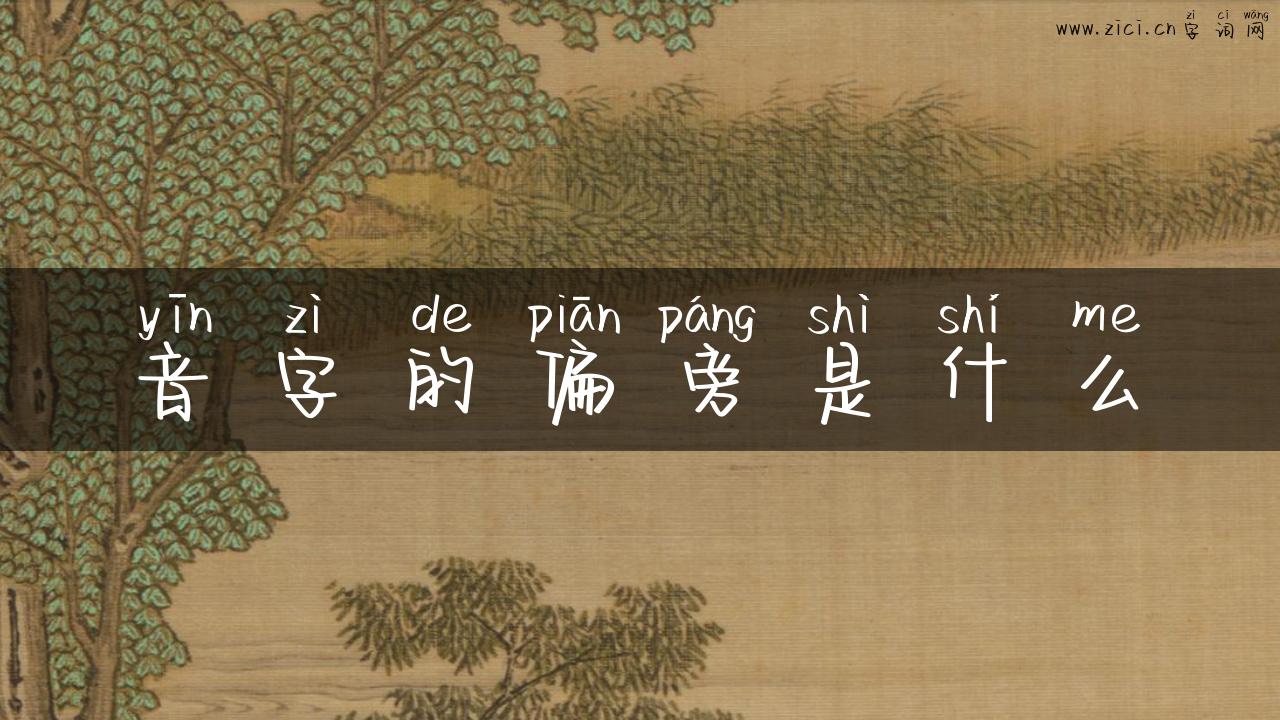 zì cí wǎng
www.zici.cn字词网
yīn zì de piān páng shì shí me
音字的偏旁是什么